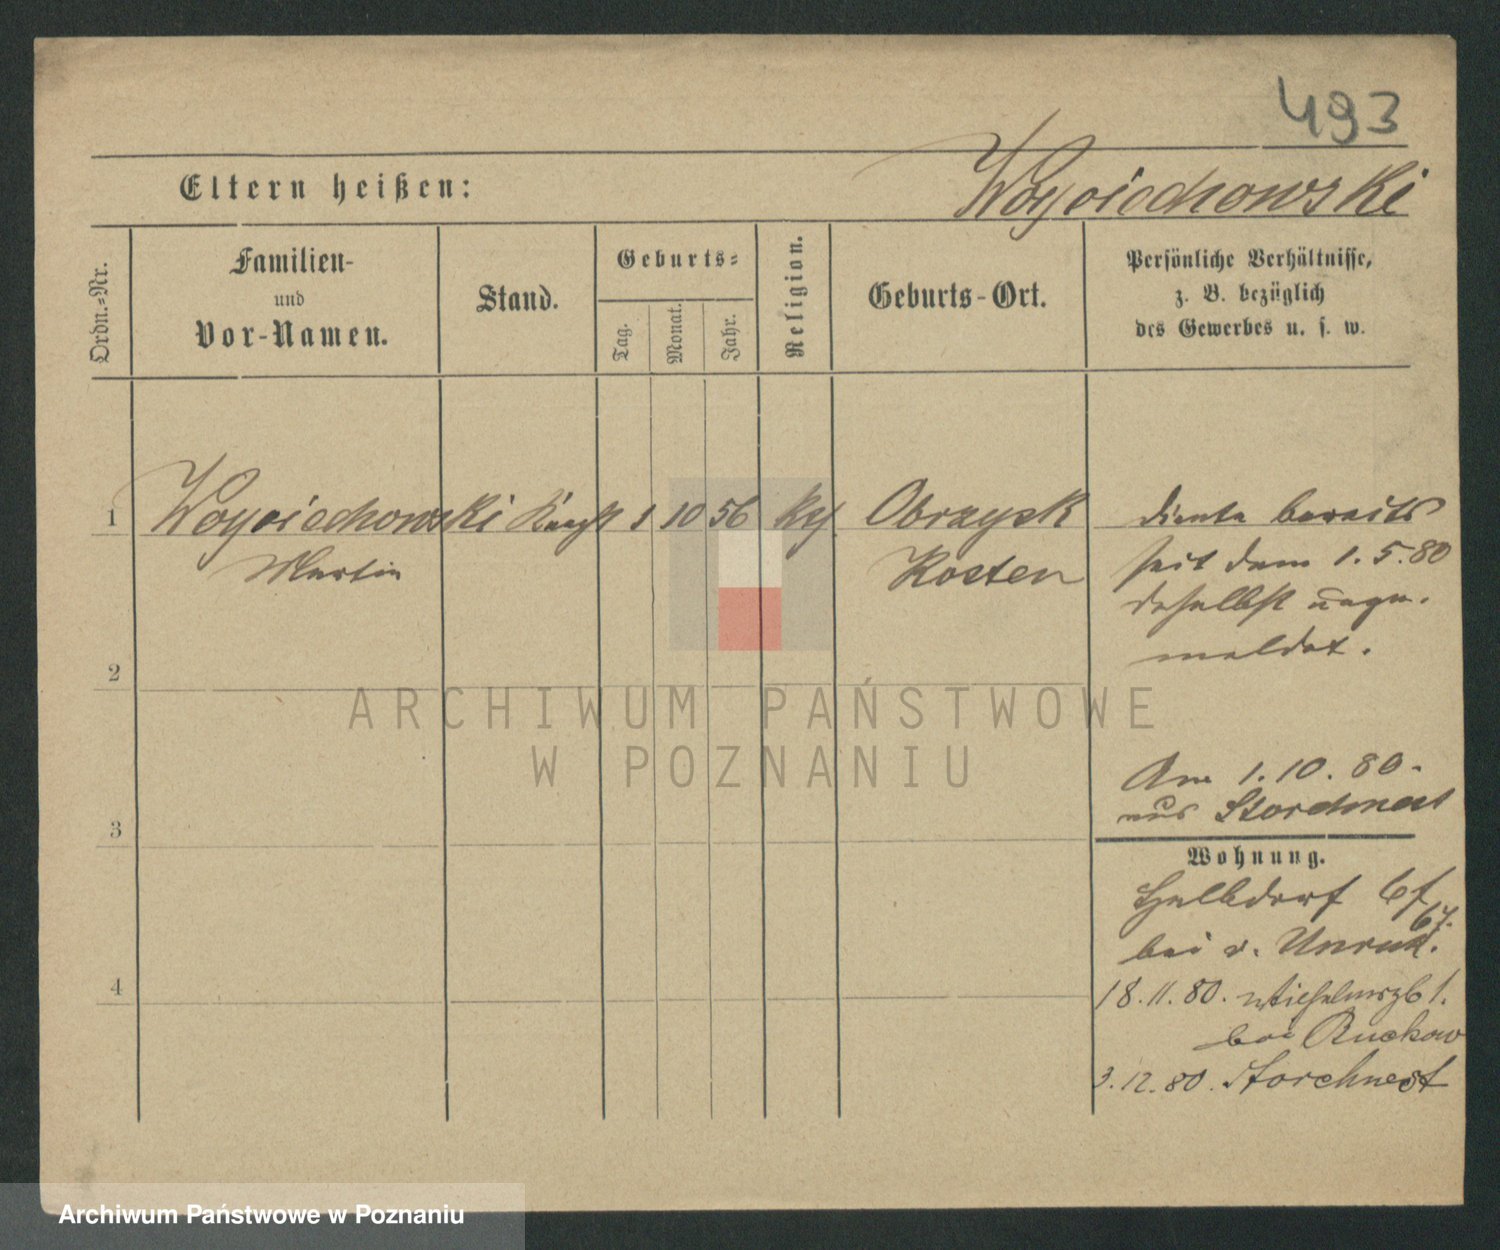 493
Eltern heißen:
Woyciechowski
Ordn.=Nr.
Familien-
und
Vor-Namen.
Stand.
Geburts=
Tag.
Monat.
Jahr.
Religion.
Geburts-Ort.
Persönliche Verhältnisse,
z. B. bezüglich
des Gewerbes u. s. w.
1 Woyciechowski 1 10 56 Obrzysk
Martin Kosten
diente bereits
seit dem 1.5.80
daselbst
meldet.
2
Am 1.10.80.
aus Storchnest
3
Wohnung.
Halbdorf
bei v. Unruh.
4
18.11.80. 1.
bei Ruckow
3.12.80. Storchnest
ARCHIWUM PAŃSTWOWE
W POZNANIU
Archiwum Państwowe w Poznaniu